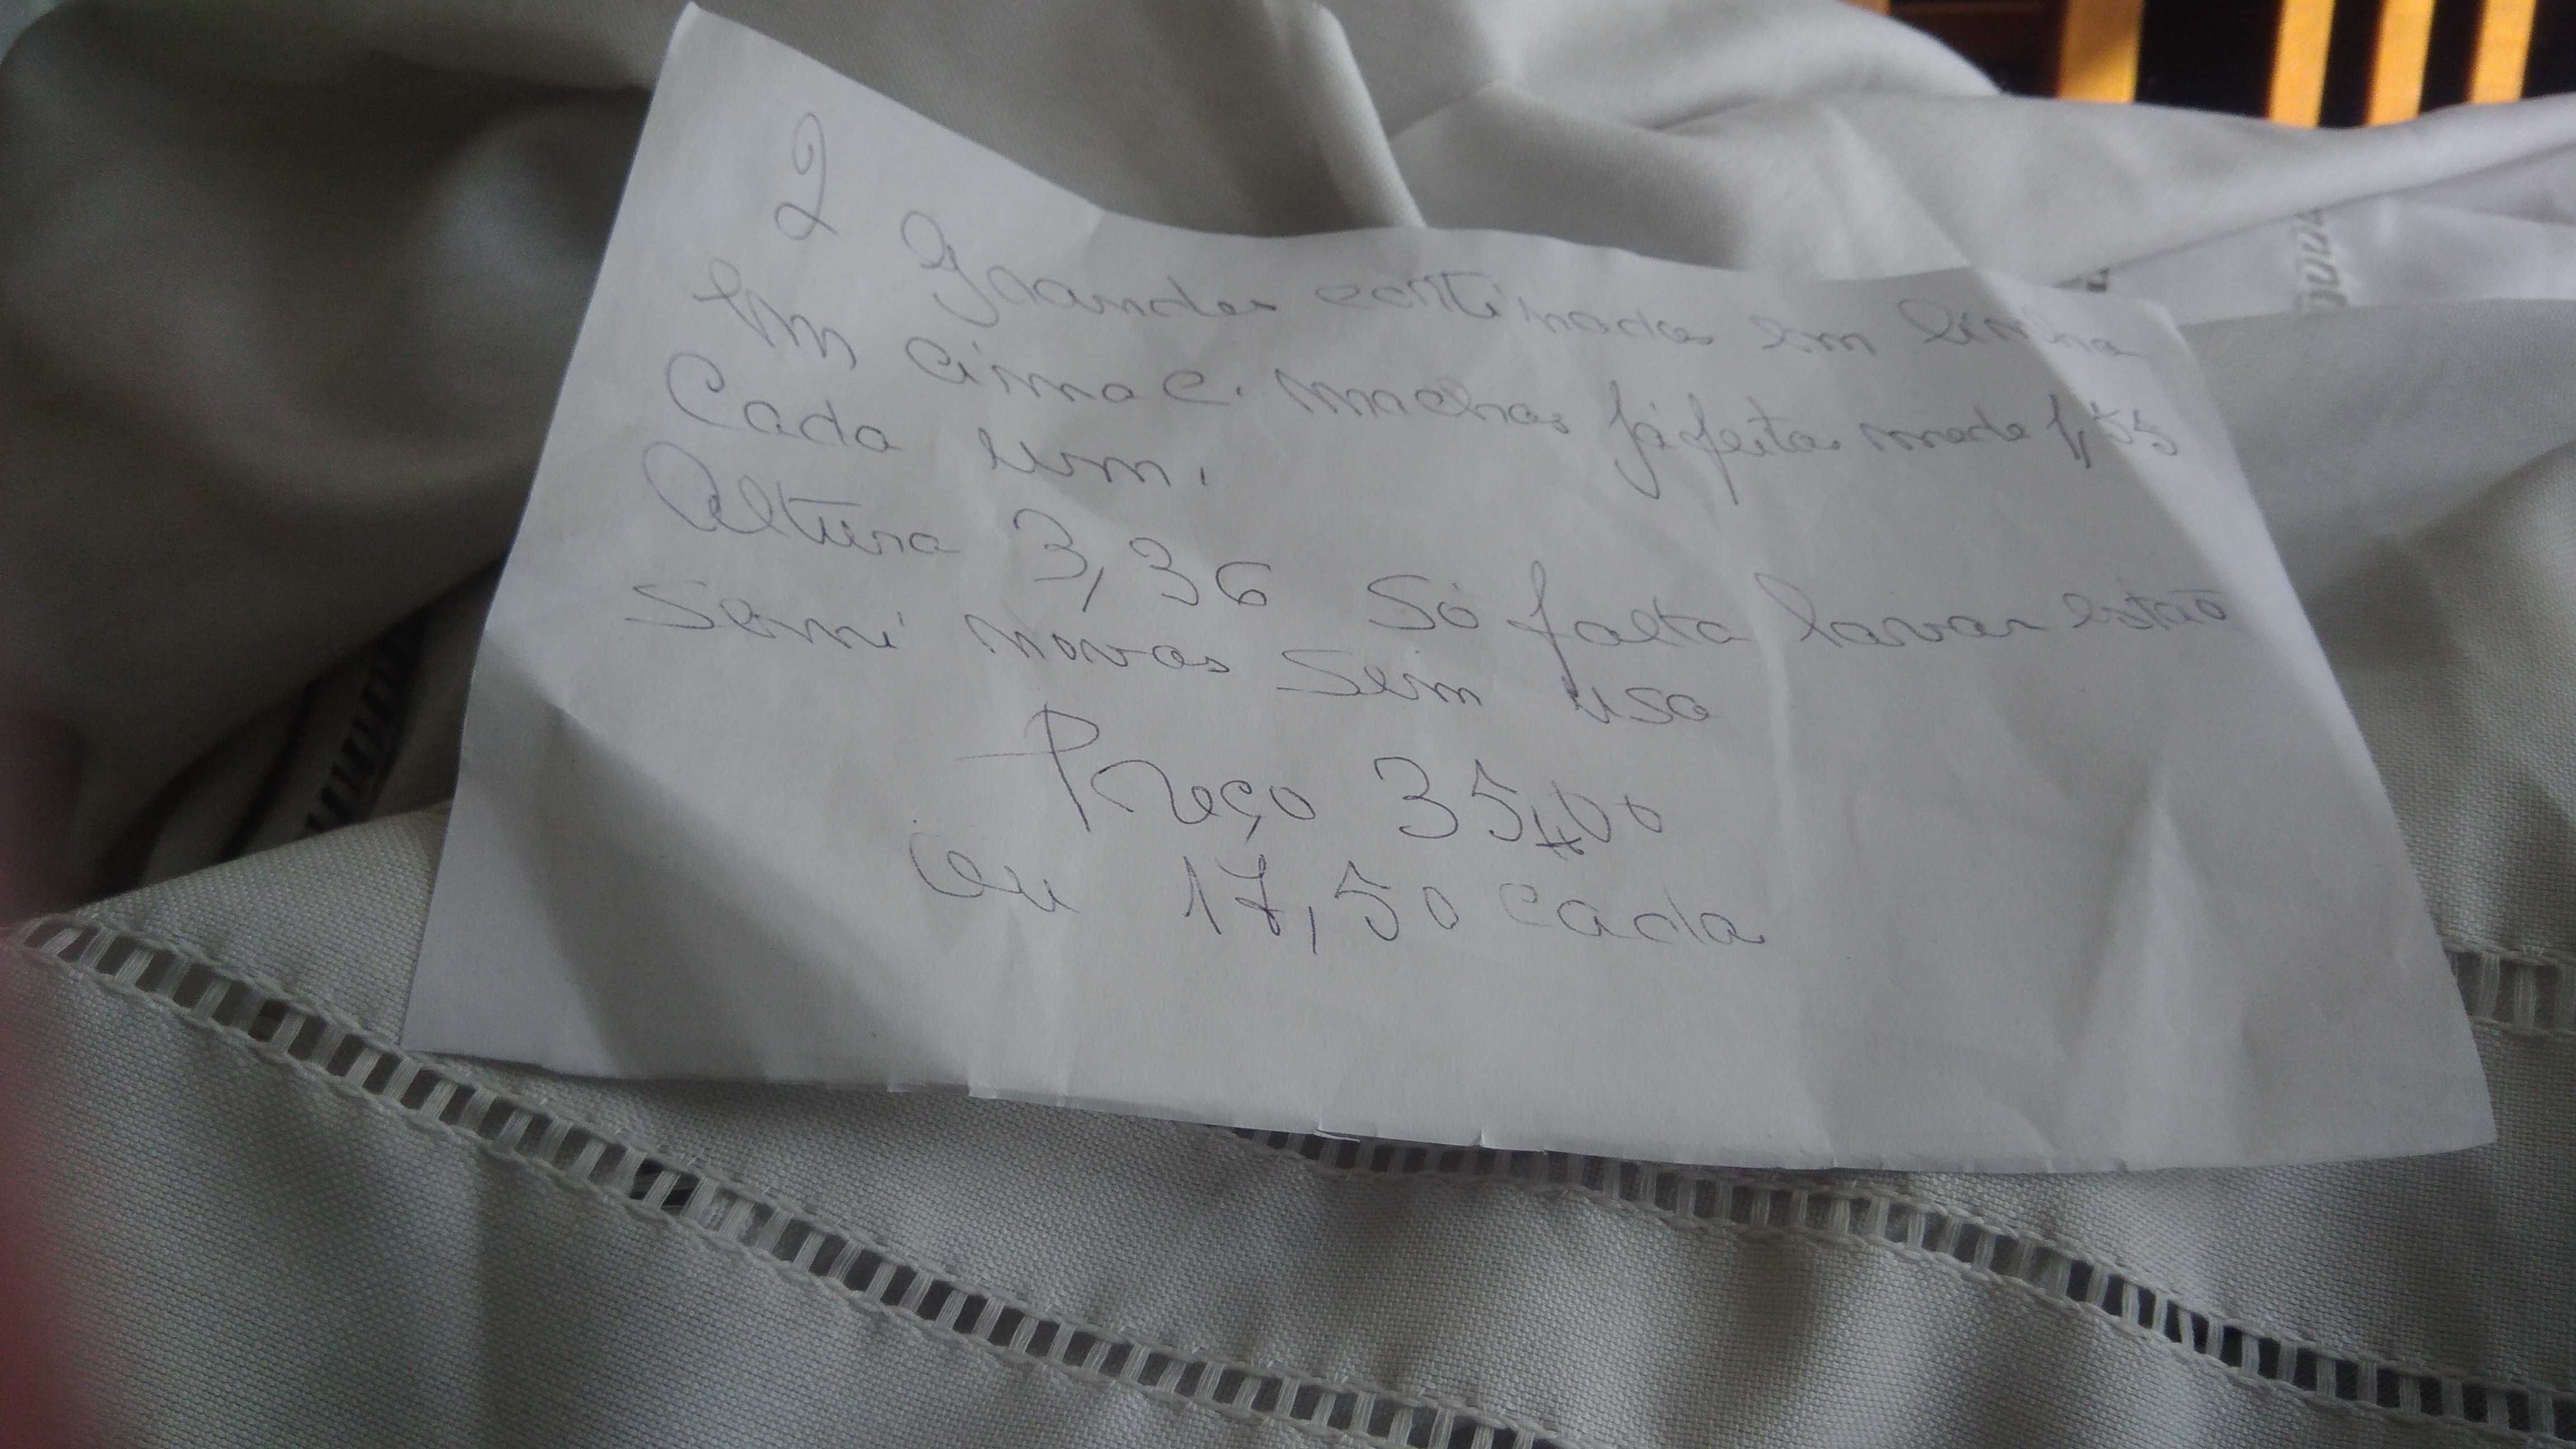 2 Grandes cortinados em linho
Em cima c. machos já feitos mede 1,55
Cada um.
Altura 3,36 Só falta lavar estão
Semi novos sem uso
Preço 35,00
Ou 17,50 cada